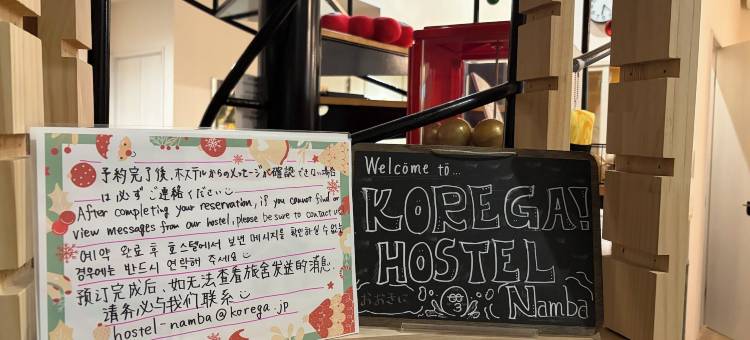 予約完了後、ホステルからのメッセージが確認できない場合
は必ずご連絡ください
After completing your reservation, if you cannot find or
view messages from our hostel, please be sure to contact us
예약 완료 후 호스텔에서 보낸 메시지를 확인하실 수 없는
경우에는 반드시 연락해 주세요
预订完成后，如无法查看旅舍发送的消息
请务必与我们联系
hostel-namba@korega.jp
Welcome to...
KOREGA!
HOSTEL
おおきに
Namba